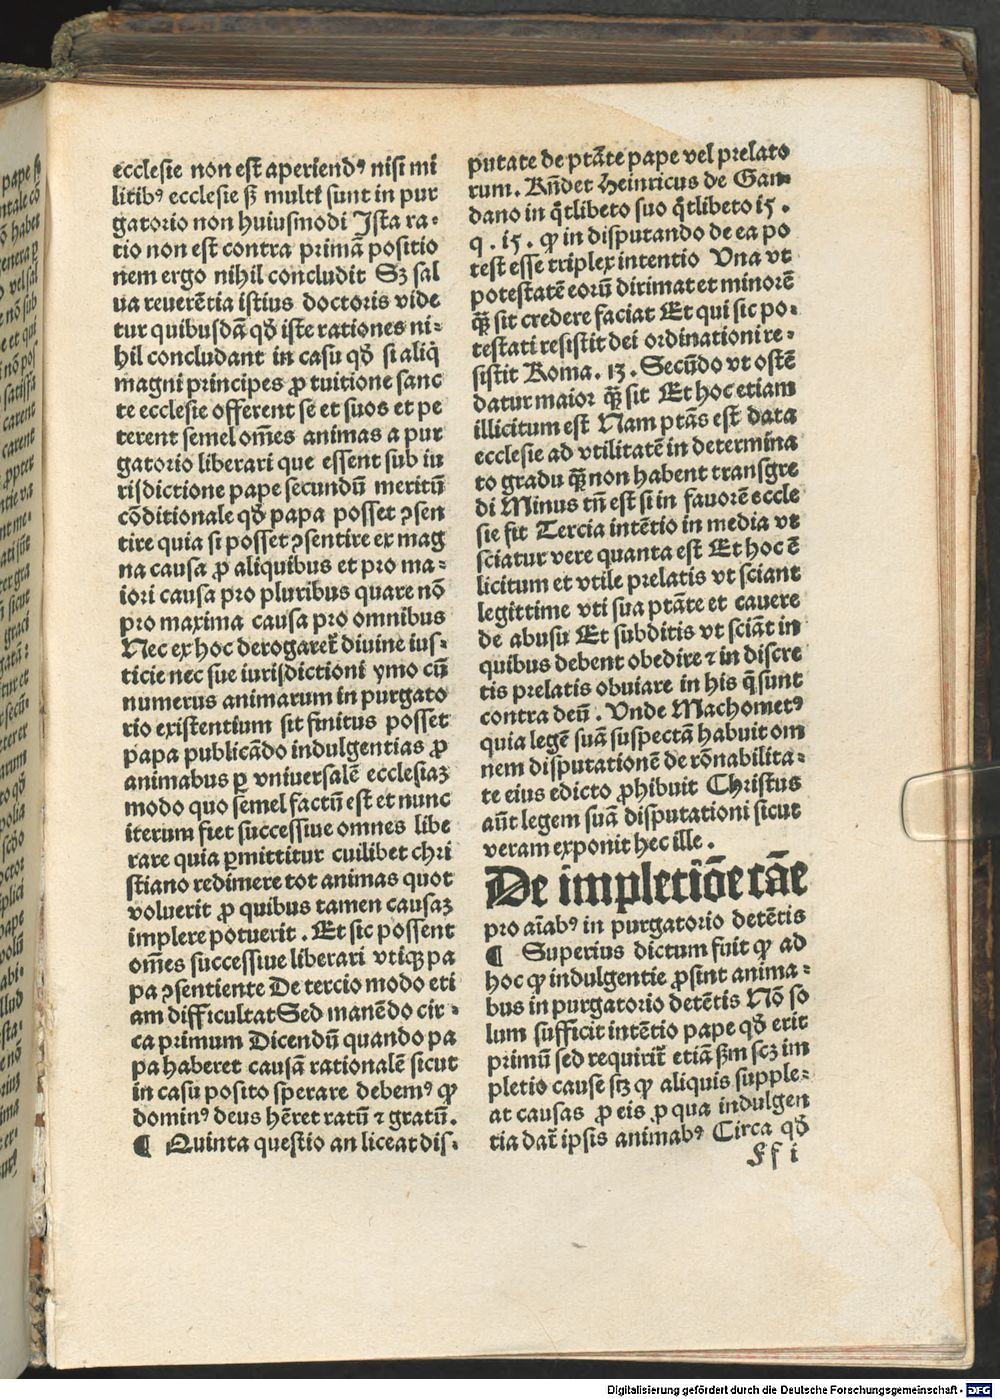 ecclesie non est aperiendꝰ nisi mi
litibꝰ ecclesie sꝫ multi sunt in pur
gatorio non huiusmodi Ista ra-
tio non est contra primā positio
nem ergo nihil concludit Sꝫ sal
ua reuerētia istius doctoris vide
tur quibusdā qđ iste rationes ni-
hil concludant in casu qđ si aliq̄
magni principes ꝓ tuitione sanc
te ecclesie offerent se et suos et pe
terent semel om̄es animas a pur
gatorio liberari que essent sub iu
risdictione pape secundū meritū
cōditionale qđ papa posset ꝯsen
tire quia si posset ꝯsentire ex mag
na causa ꝓ aliquibus et pro ma-
iori causa pro pluribus quare nō
pro maxima causa pro omnibus
Nec ex hoc derogaret̄ diuine ius-
ticie nec sue iurisdictioni ymo cū
numerus animarum in purgato
rio existentium sit finitus posset
papa publicādo indulgentias ꝓ
animabus ꝑ vniuersalē ecclesiaꝫ
modo quo semel factū est et nunc
iterum fiet successiue omnes libe
rare quia ꝑmittitur cuilibet chri
stiano redimere tot animas quot
voluerit ꝓ quibus tamen causaꝫ
implere potuerit . Et sic possent
om̄es successiue liberari vtiqꝫ pa
pa ꝯsentiente De tercio modo eti
am difficultat Sed manēdo cir-
ca primum Dicendū quando pa
pa haberet causā rationalē sicut
in casu posito sperare debemꝰ ꝙ
dominꝰ deus hēret ratū ⁊ gratū.
¶ Quinta questio an liceat dis-
putate de ptāte pape vel prelato
rum . Rn̄det Heinricus de Gan-
dano in q̄tlibeto suo q̄tlibeto i5 .
q . i5 . ꝙ in disputando de ea po
test esse triplex intentio Una vt
potestatē eorū dirimat et minorē
q̄ꝫ sit credere faciat Et qui sic po-
testati resistit dei ordinationi re-
sistit Roma . i3 . Secūdo vt ostē
datur maior q̄ꝫ sit Et hoc etiam
illicitum est Nam ptās est data
ecclesie ad vtilitatē in determina
to gradu q̄ꝫ non habent transgre
di Minus tn̄ est si in fauorē eccle
sie fit Tercia intētio in media vt
sciatur vere quanta est Et hoc ē
licitum et vtile prelatis vt sciant
legittime vti sua ptāte et cauere
de abusu Et subditis vt sciāt in
quibus debent obedire ⁊ in discre
tis prelatis obuiare in his q̄ sunt
contra deū . Unde Machometꝰ
quia legē suā suspectā habuit om
nem disputationē de rōnabilita-
te eius edicto ꝓhibuit Christus
aūt legem suā disputationi sicut
veram exponit hec ille .
De impletiōe cāe
pro aīabꝰ in purgatorio detētis
¶ Superius dictum fuit ꝙ ad
hoc ꝙ indulgentie ꝓsint anima-
bus in purgatorio detētis Nō so
lum sufficit intētio pape qđ erit
primū sed requirit̄ etiā sꝫm scꝫ im
pletio cause scꝫ ꝙ aliquis supple-
at causas ꝓ eis ꝓ qua indulgen
tia dat̄ ipsis animabꝰ Circa qđ
ff i
Digitalisierung gefördert durch die Deutsche Forschungsgemeinschaft - DFG